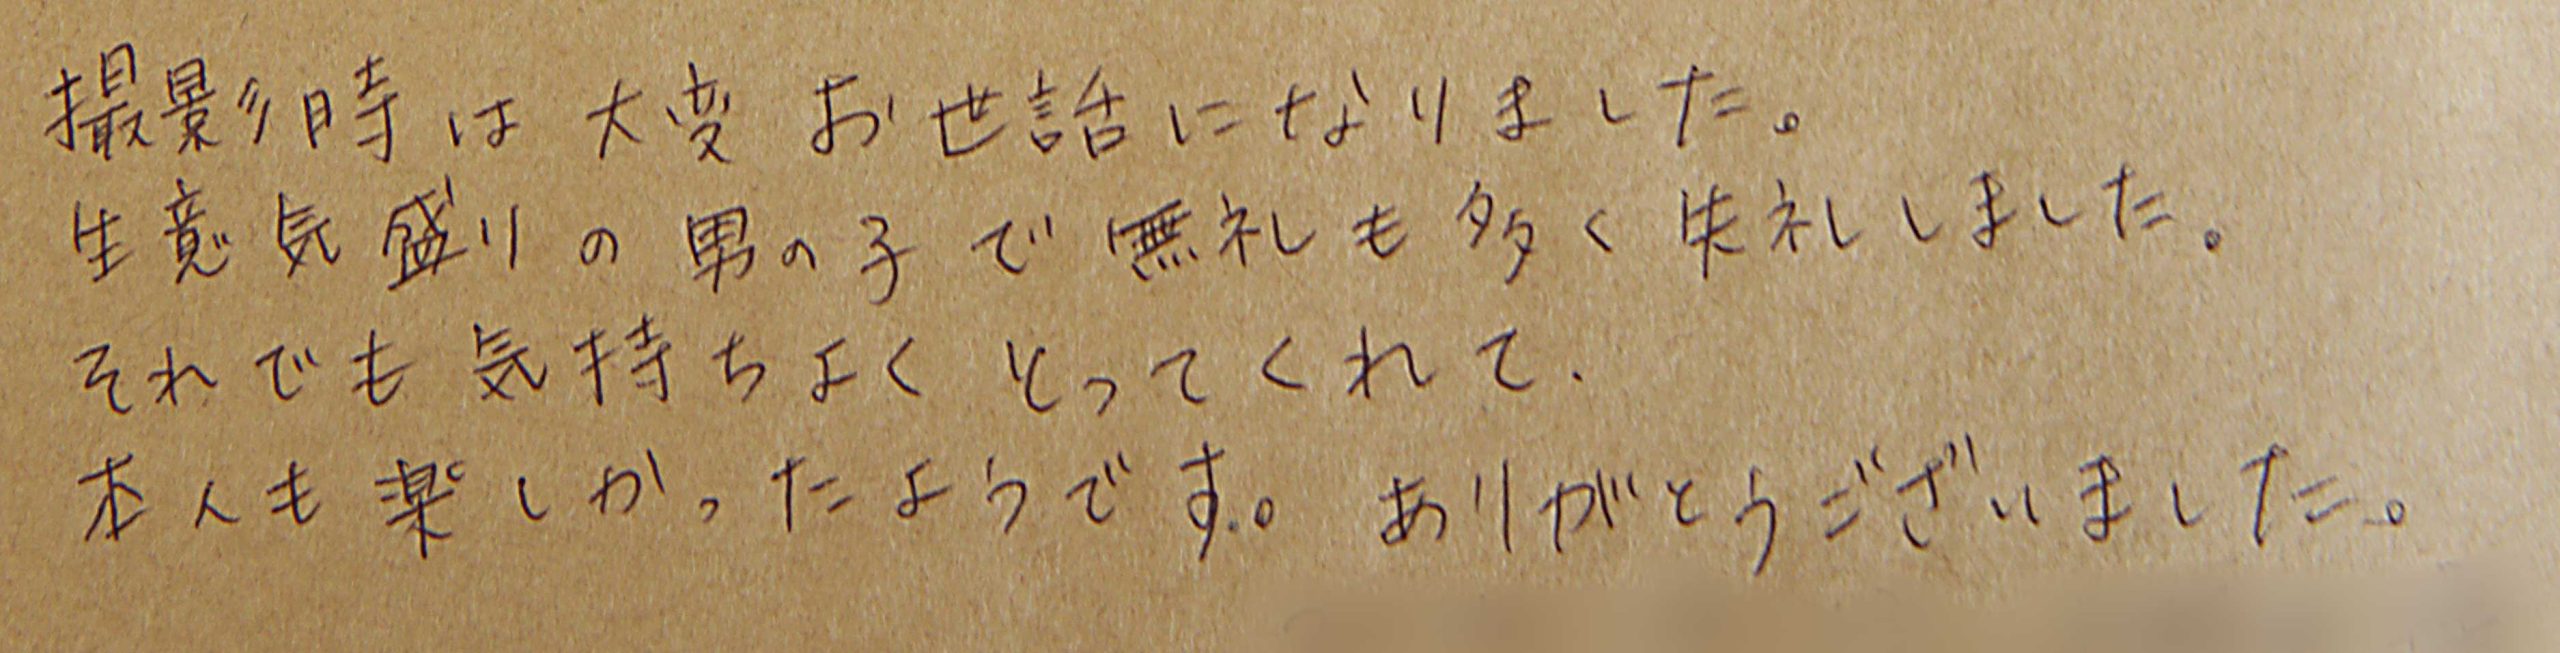 撮影時は大変お世話になりました。
生意気盛りの男の子で無礼も多く失礼しました。
それでも気持ちよくとってくれて、
本人も楽しかったようです。ありがとうございました。